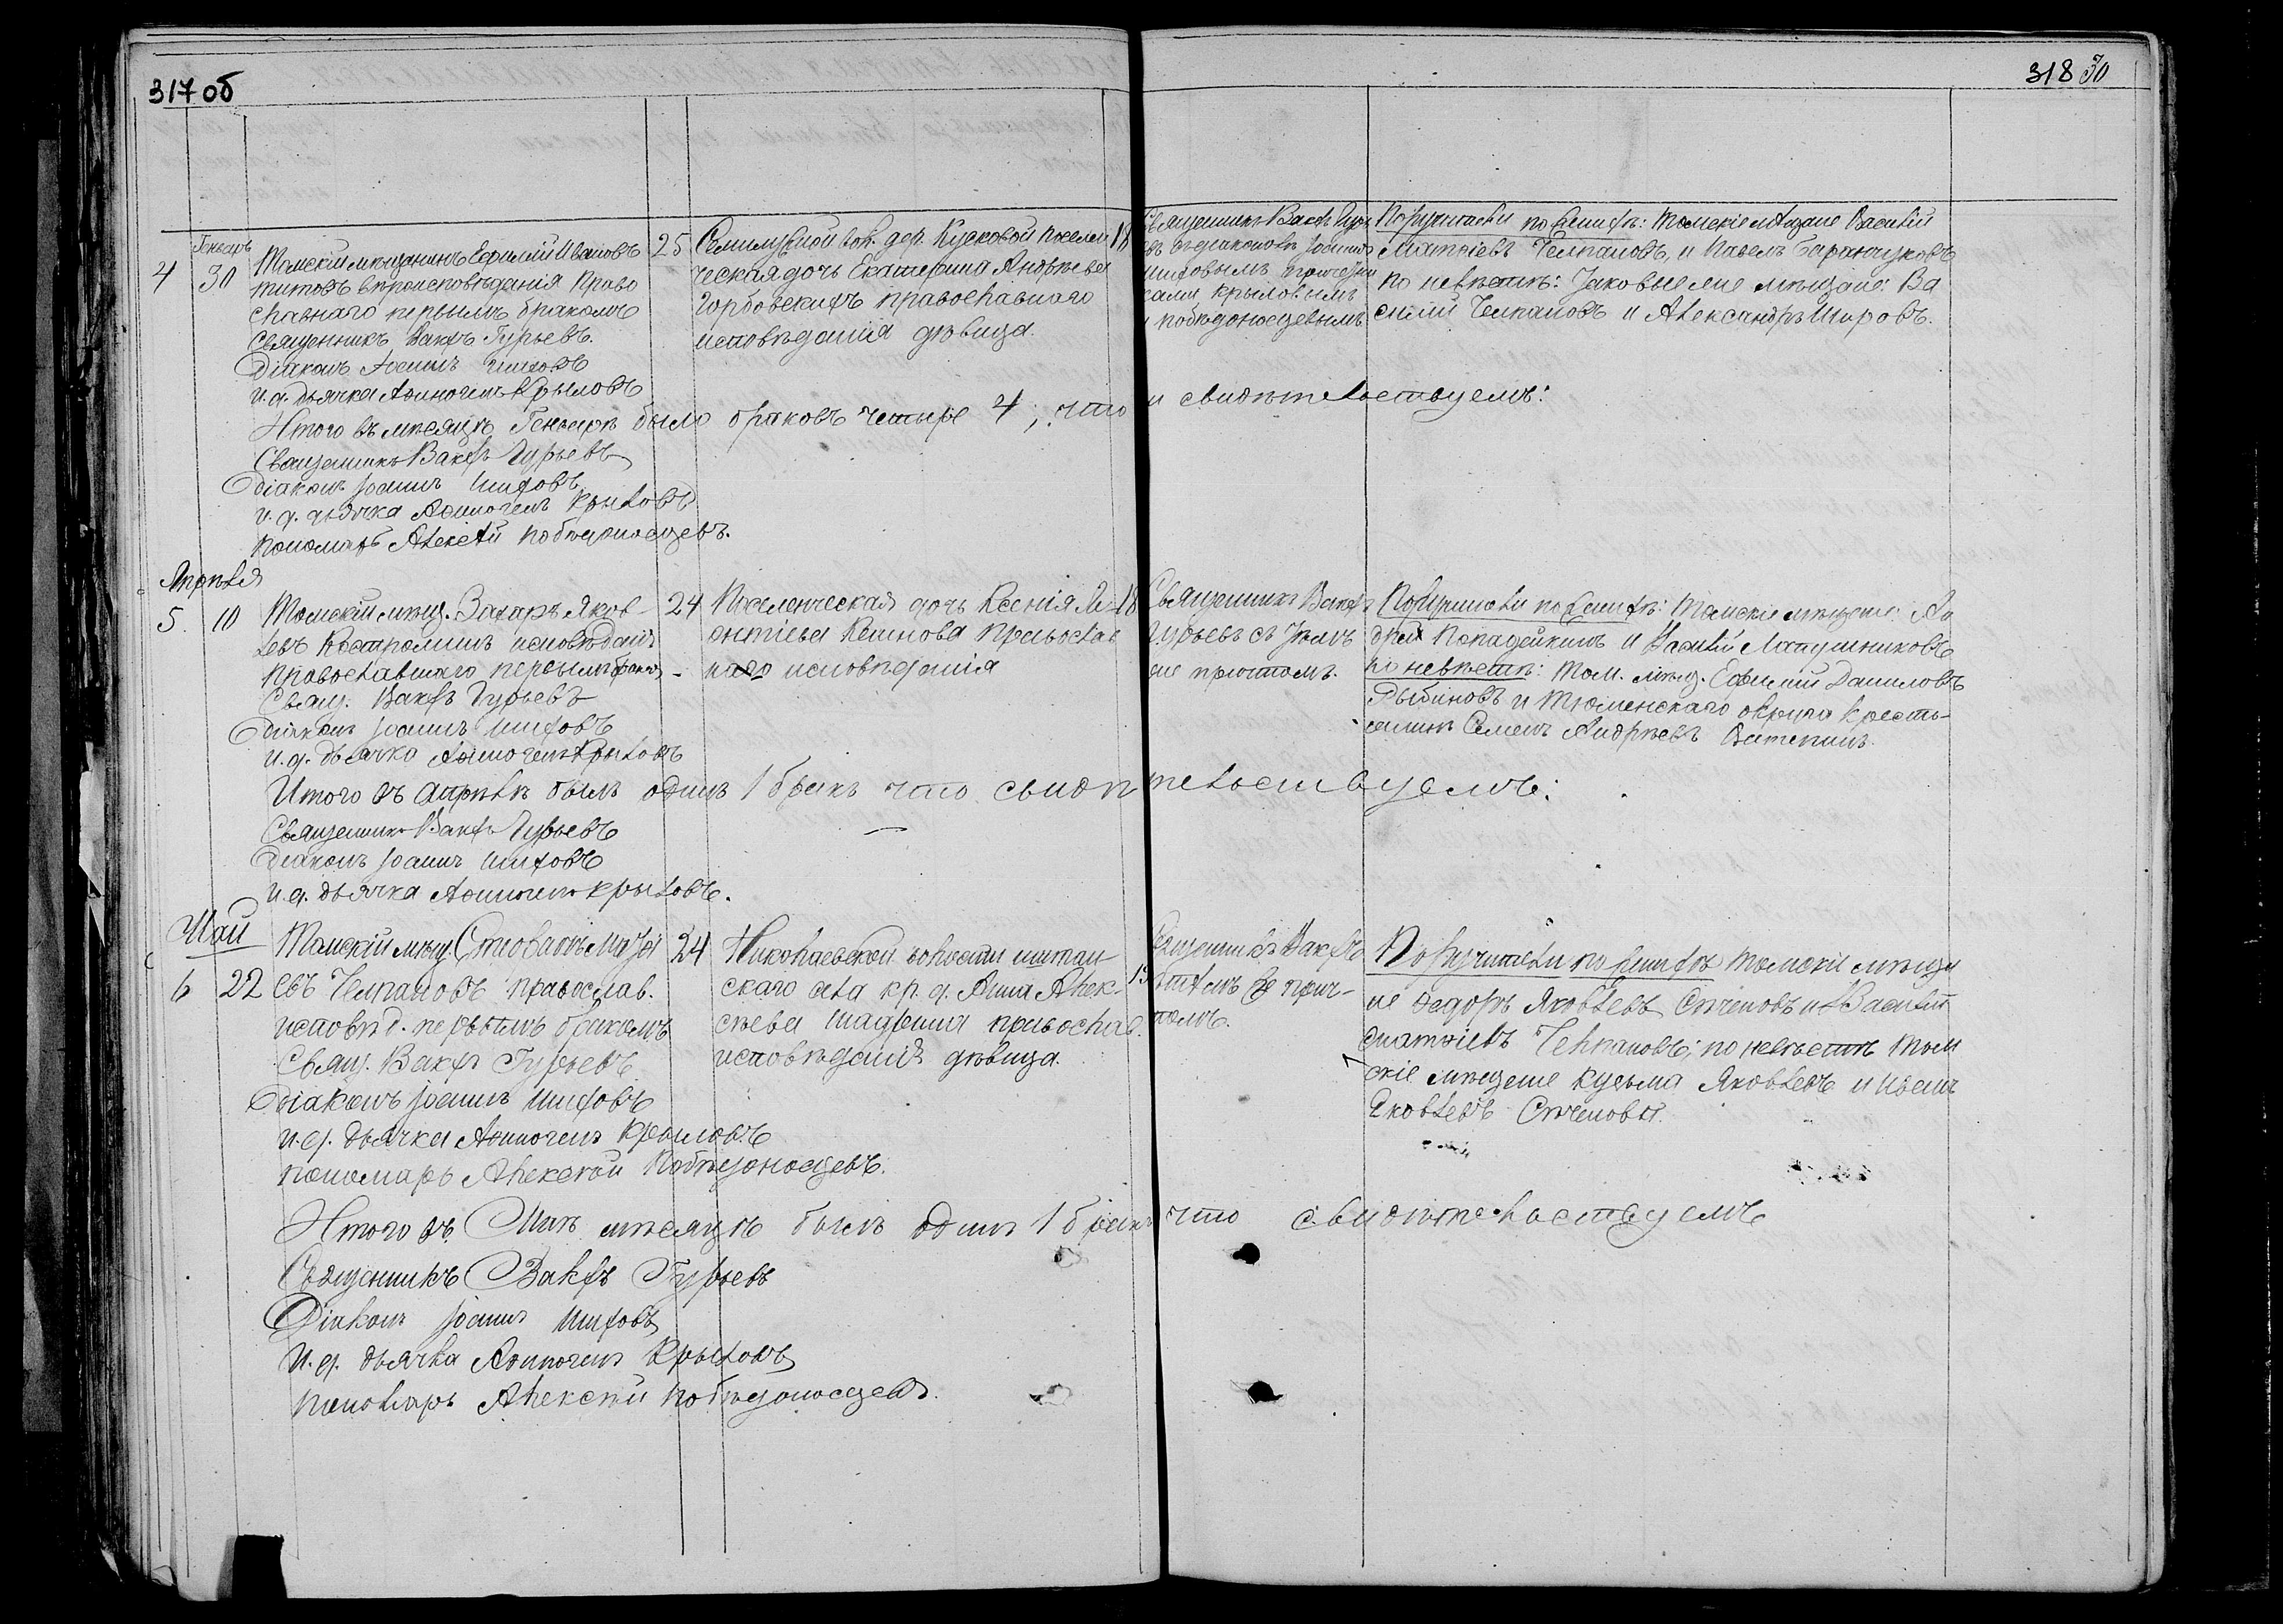 317 об
318 30
Генварь
4 30 Томскій мѣщанинъ Ефимій Ивановъ
Титовъ вѣроисповѣданія Право
славнаго первымъ бракомъ
Священникъ Вакхъ Гурьевъ.
Діаконъ Іоаннъ
и.д. дьячка Аѳиногенъ Крыловъ
25
вол. дер. Кусковой поселен
ческая дочь Екатерина Андрѣева
Горбовскихъ православнаго
исповѣданія дѣвица.
18
Священникъ Вакхъ Гурь
евъ съ діакономъ Іоанномъ
причетни
ками Крыловымъ
и Побѣдоносцевымъ
Поручители по женихѣ: Томскіе мѣщане Василій
Матѳіевъ Челпановъ, и Павелъ Баранчуковъ
по невѣстѣ: Таковые же мѣщане: Ва
силій Челпановъ и Александръ Шировъ.
Итого въ мѣсяцѣ Генварѣ было браковъ четыре 4, что и свидѣтельствуемъ:
Священникъ Вакхъ Гурьевъ
Діаконъ Іоаннъ
и. д. дьячка Аѳиногенъ Крыловъ
Пономарь Алексѣй Побѣдоносцевъ.
Апрѣля
5. 10 Томскій мѣщ. Захаръ Яков-
левъ Костроминъ исповѣданія
православнаго первымъ бракомъ
Свящ. Вакхъ Гурьевъ
Діаконъ Іоаннъ
и.д. дьячка Аѳиногенъ Крыловъ
24
Поселенческая дочь Ксенія Ле-
онтіева православ
наго исповѣданія
18
Священникъ Вакхъ
Гурьевъ съ
же причтомъ.
Поручители по женихѣ: Томскіе мѣщане: Ан
дрей Попадейкинъ и Василій Лапушниковъ
по невѣстѣ: Том. мѣщ. Ефимій Даниловъ
Рыбиновъ и Тюменскаго округа кресть-
янинъ Семенъ Андрѣевъ
Итого въ Апрѣлѣ былъ одинъ 1 бракъ что свидѣтельствуемъ:
Священникъ Вакхъ Гурьевъ
Діаконъ Іоаннъ
и.д. дьячка Аѳиногенъ Крыловъ.
Май
6 22 Томскій мѣщ.
евъ Челпановъ православ.
исповѣд. первымъ бракомъ
Свящ. Вакхъ Гурьевъ
Діаконъ Іоаннъ
и.д. дьячка Аѳиногенъ Крыловъ
пономарь Алексѣй Побѣдоносцевъ.
24
Николаевской волости
скаго села кр. д. Анна Алек-
сѣева Шадрина православ.
исповѣданія дѣвица.
Священникъ Вакхъ
съ прич-
томъ.
Поручители по женихѣ Томскіе мѣща
не Ѳедоръ Яковлевъ и Василій
Матѳіевъ Челпановъ; по невѣстѣ Том
скіе мѣщане Кузьма Яковлевъ и Иванъ
Яковлевъ
Итого въ Маѣ мѣсяцѣ былъ одинъ 1 бракъ что свидѣтельствуемъ
Священникъ Вакхъ Гурьевъ
Діаконъ Іоаннъ
И.д. дьячка Аѳиногенъ Крыловъ
пономарь Алексѣй Побѣдоносцевъ.